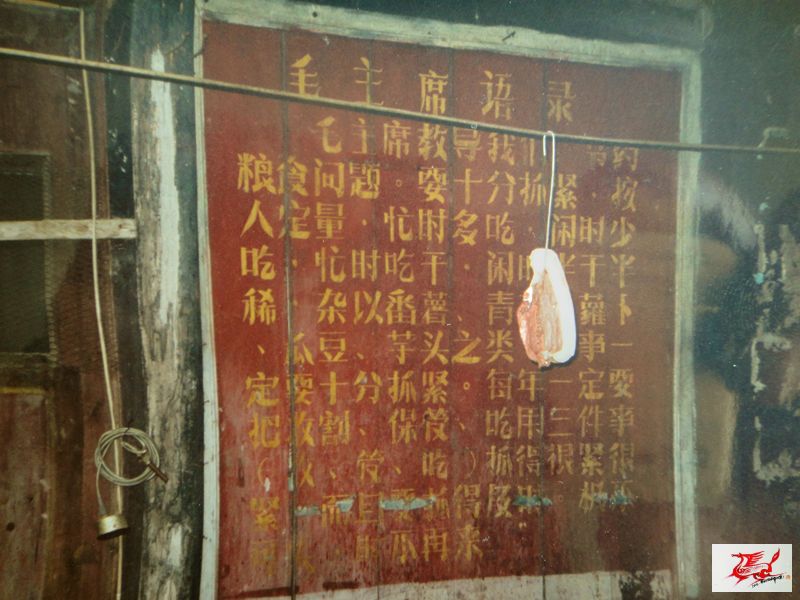 毛主席语录
毛主席教导我们：节约
粮食问题要十分抓紧，按
人定量，忙时多吃，闲时少
吃，忙时吃干，闲时半干半
稀、杂以番薯、青菜、萝卜
、瓜豆、芋头之类。此事一
定要十分抓紧。每年一定要
把收割、保管、吃用三件事
（收、管、吃）抓得很紧很
紧，而且要抓得及时。机不
可失，时不再来